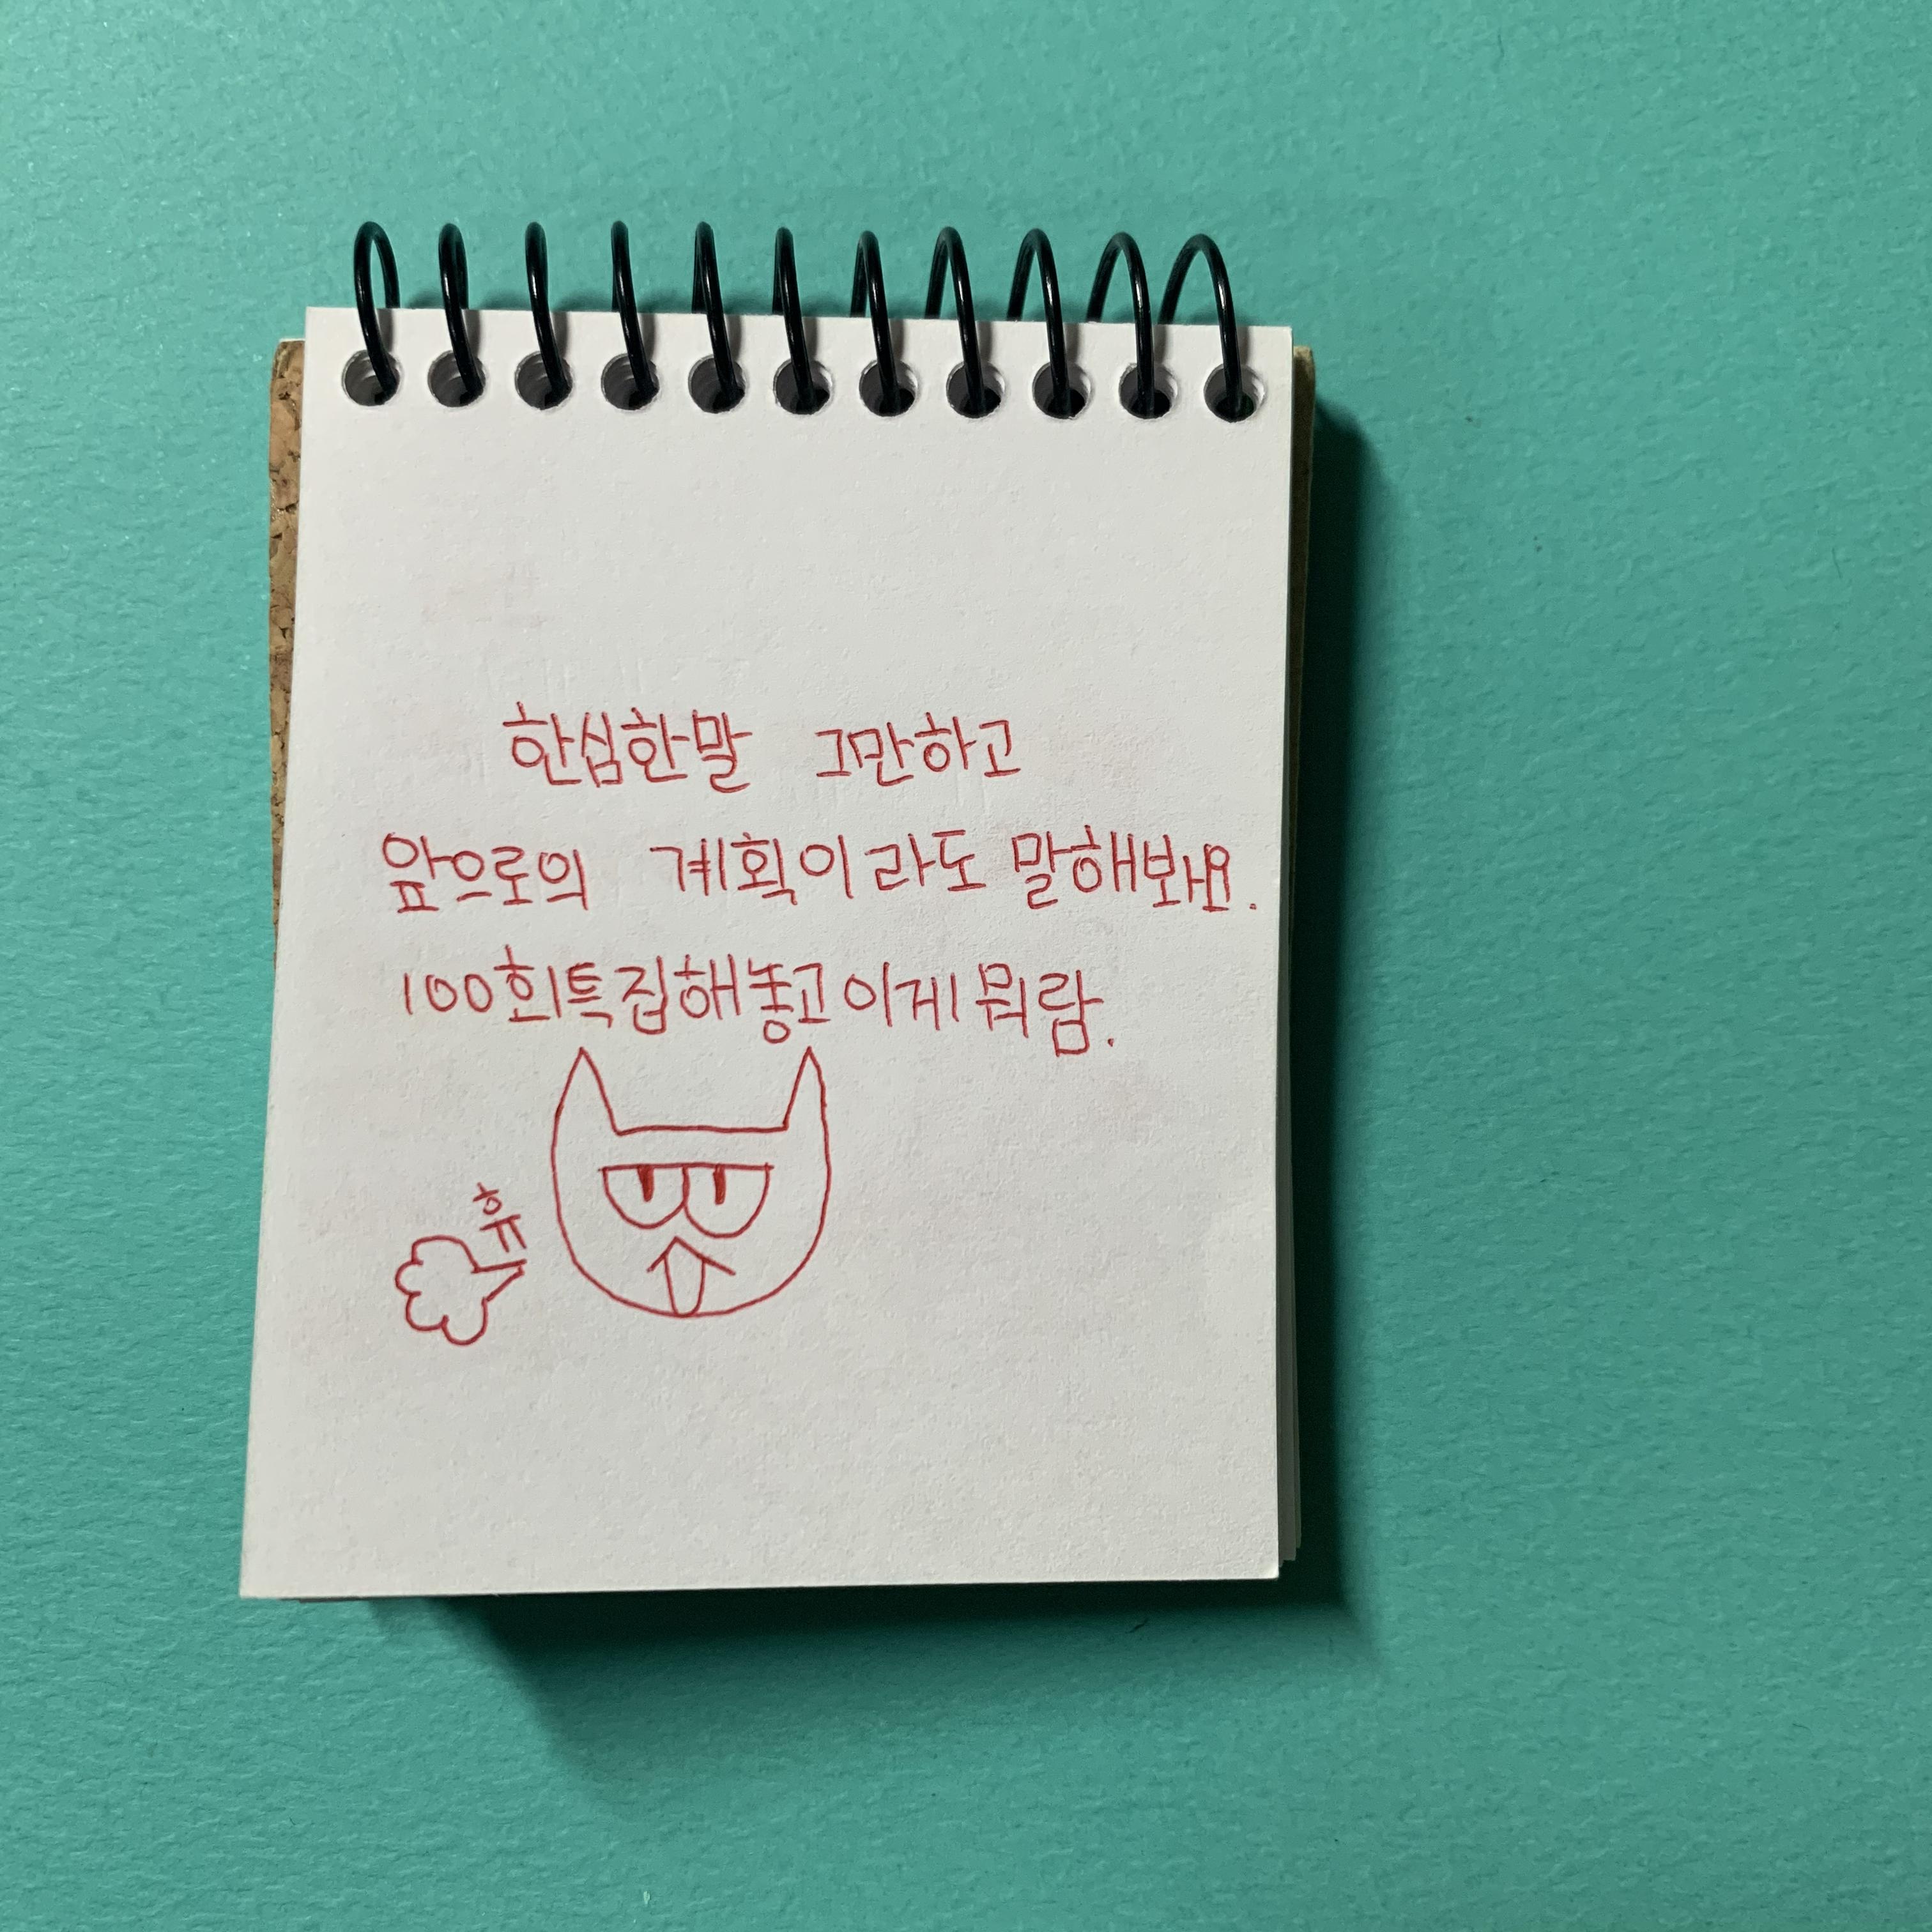 한심한말 그만하고
앞으로의 계획이라도 말해봐요.
100회특집해놓고이게뭐람.
휴